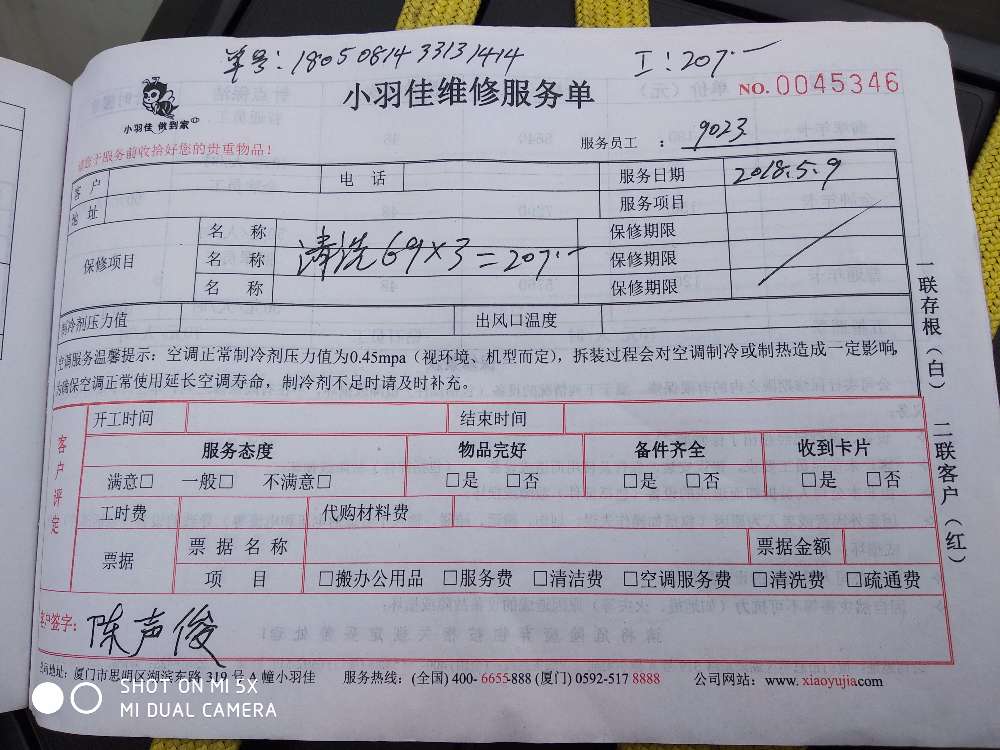 单号: 18050814 33131414 I: 207.一
小羽佳维修服务单 NO. 0045346
小羽佳 做到家
服务员工 : 9023
请您于服务前收拾好您的贵重物品!
客 户 电 话 服务日期 2018.5.9
地 址 服务项目
保修项目 名 称 保修期限
名 称 清洗69×3=207.一 保修期限
名 称 保修期限
制冷剂压力值 出风口温度
空调服务温馨提示: 空调正常制冷剂压力值为0.45mpa (视环境、机型而定), 拆装过程会对空调制冷或制热造成一定影响,
为确保空调正常使用延长空调寿命, 制冷剂不足时请及时补充。
客户评定
开工时间 结束时间
服务态度 物品完好 备件齐全 收到卡片
满意□ 一般□ 不满意□ □是 □否 □是 □否 □是 □否
工时费 代购材料费
票据 票 据 名 称 票据金额
项 目 □搬办公用品 □服务费 □清洁费 □空调服务费 □清洗费 □疏通费
客户签字: 陈声俊
公司地址: 厦门市思明区湖滨东路 319 号 A 幢小羽佳 服务热线: (全国) 400- 6655-888 (厦门) 0592-517 8888 公司网站: www. xiaoyujia.com
一联存根(白) 二联客户(红)
SHOT ON MI 5X
MI DUAL CAMERA